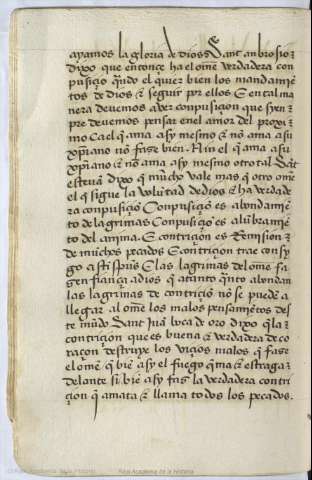 ayamos la gloria de dios Sant ambrosio
dixo que entonçe ha el ome verdadera con
pusiçio qndo el quier bien los mandamie
tos de dios e seguir por ellos E en tal ma
nera devemos aver conpusiçion que syen
pre devemos pensar en el amor del proxi
mo Ca el q ama asy mesmo e no ama a su
xpiano no fase bien Ni el q ama a su
xpiano e no ama asy mesmo otro tal Sat
estevan dixo q mucho vale mas q otro ome
el q sigue la volutad de dios e ha verdade
ra conpusiçio Conpusiçio es abondamie
to de lagrimas Conpusiçio es alubramie
to del anima E contriçion es Remision
de muchos pecados E contriçion trae consy
go a sti spus E las lagrimas del ome fa
gen fiança a dios q atanto qnto abondan
las lagrimas de contriçio no se puede a
llegar al ome los malos pensamietos des
te mudo Sant Jua boca de oro dixo q la
contriçion que es buena e verdadera de co
raçon destruye los viçios malos q fase
el ome q bie asy el fuego qma e estraga
delante si bie asy fas la verdadera contri
çio q amata e llama todos los pecados.
Real Academia de la Historia